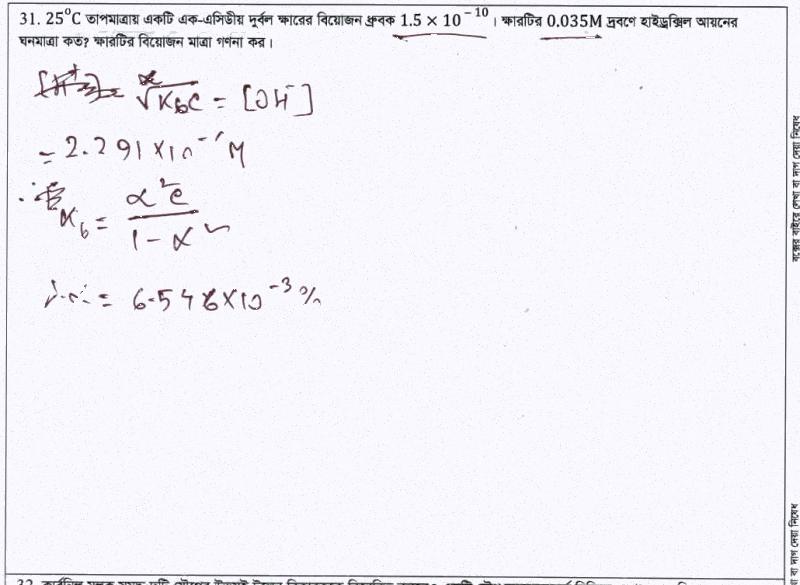 31. 25⁰C তাপমাত্রায় একটি এক-এসিডীয় দুর্বল ক্ষারের বিয়োজন ধ্রুবক 1.5 × 10⁻¹⁰ । ক্ষারটির 0.035M দ্রবণে হাইড্রক্সিল আয়নের
ঘনমাত্রা কত? ক্ষারটির বিয়োজন মাত্রা গণনা কর।
√K_bC = [OH⁻]
= 2.291 × 10⁻⁶ M
K_b = α²C / 1 - α
= 6.546 × 10⁻³ %
বক্সের বাইরে লেখা বা দাগ দেয়া নিষেধ
বা দাগ দেয়া নিষেধ